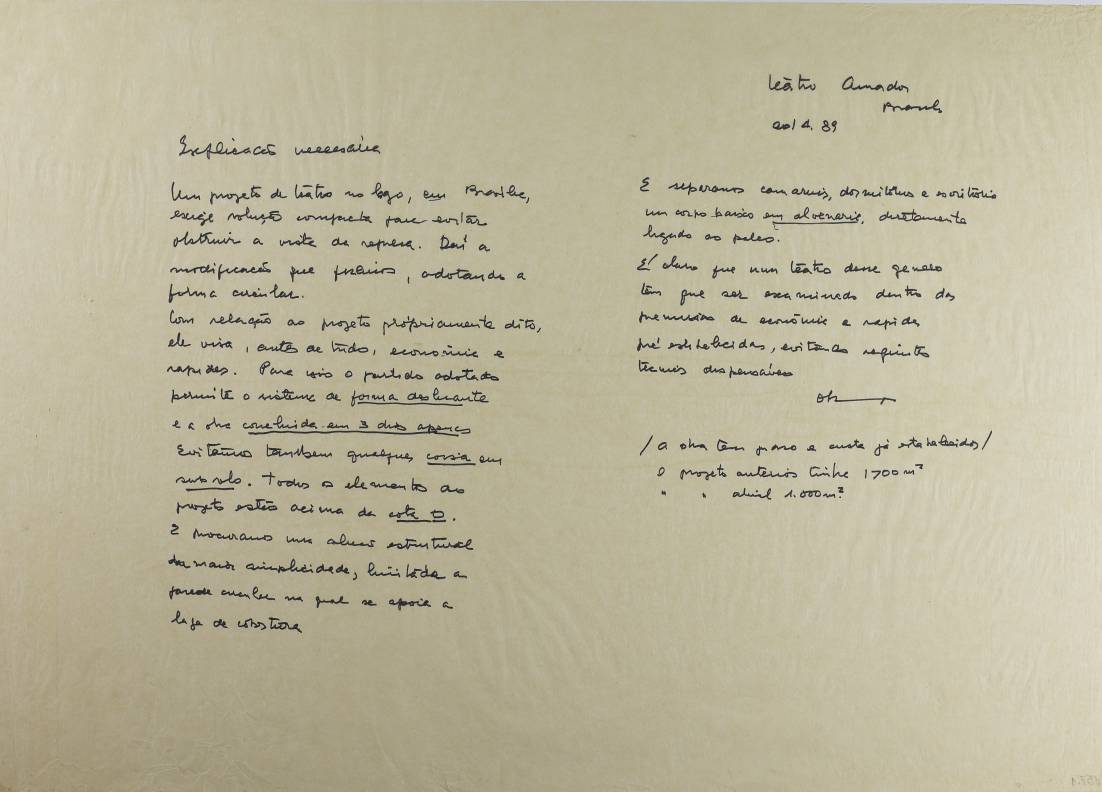 Teátro Amador
Brasília
20/4.89
Explicação necessária
Um projeto de teátro no lago, em Brasília,
exige solução compacta para evitar
obstruir a vista da represa. Daí a
modificação que fizemos, adotando a
forma circular.
Com relação ao projeto própriamente dito,
ele visa, antes de tudo, economia e
rapides. Para isso o partido adotado
permite o sistema de forma deslisante
e a obra concluida em 3 dias apenas
Evitamos tambem qualquer coisa em
sub solo. Todos os elementos do
projeto estão acima da cota 0.
E procuramos uma solução estrutural
da maior simplicidade, limitada a
parede circular na qual se apoia a
laje de cobertura
E separamos camarins, dormitórios e escritório
um corpo baixo em alvenaria, diretamente
ligado ao palco.
É claro que um teátro desse genero
tem que ser examinado dentro das
premissas de economia e rapides
pré estabelecidas, evitando requintes
técnicos dispensáveis
/ A obra tem prazo e custo já estabelecidos /
O projeto anterior tinha 1700 m²
" " atual 1.000 m²